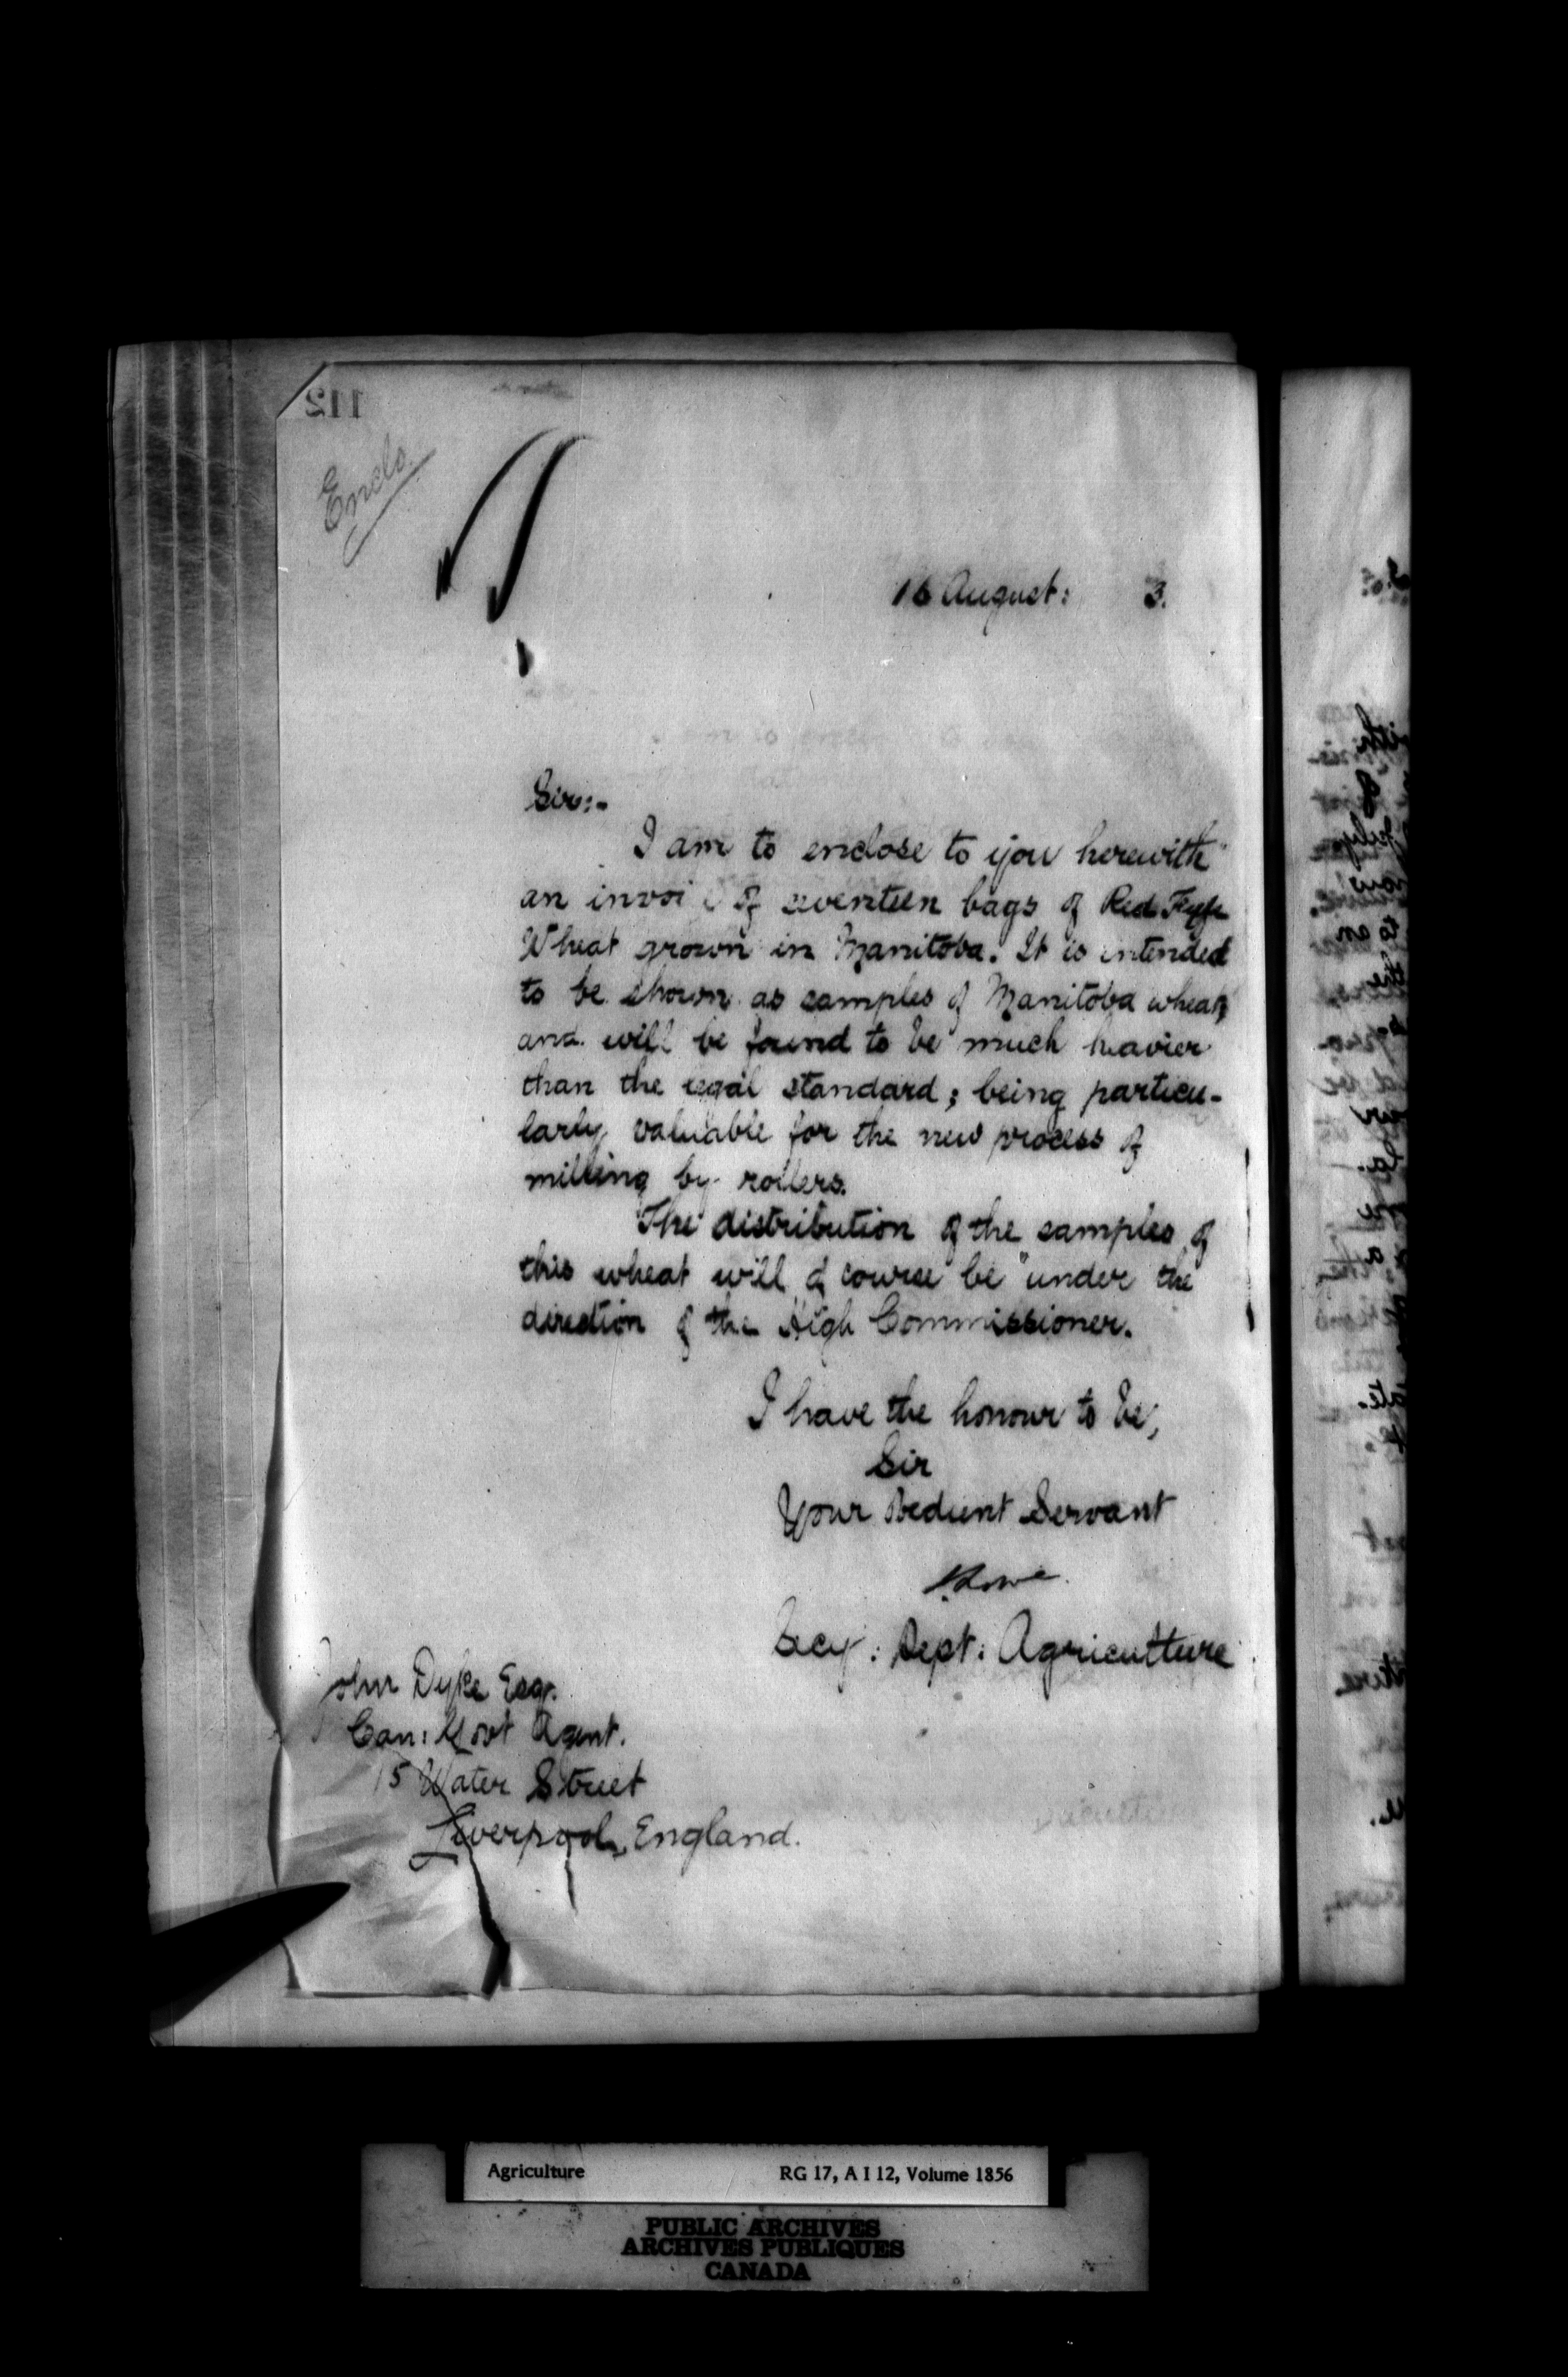 112
Enclo
16 August: 3.
Sir:-
I am to enclose to you herewith
an invoi of seventeen bags of Red Fyfe
Wheat grown in Manitoba. It is intended
to be shown as samples of Manitoba wheat,
and will be found to be much heavier
than the legal standard; being particu-
larly valuable for the new process of
milling by rollers.
The distribution of the samples of
this wheat will of course be under the
direction of the High Commissioner.
I have the honour to be,
Sir
Your Obedient Servant
Lowe
Secy: Dept: Agriculture
John Dyke Esqr.
Can: Govt Agent.
15 Water Street
Liverpool, England.
Agriculture RG 17, A I 12, Volume 1856
PUBLIC ARCHIVES
ARCHIVES PUBLIQUES
CANADA